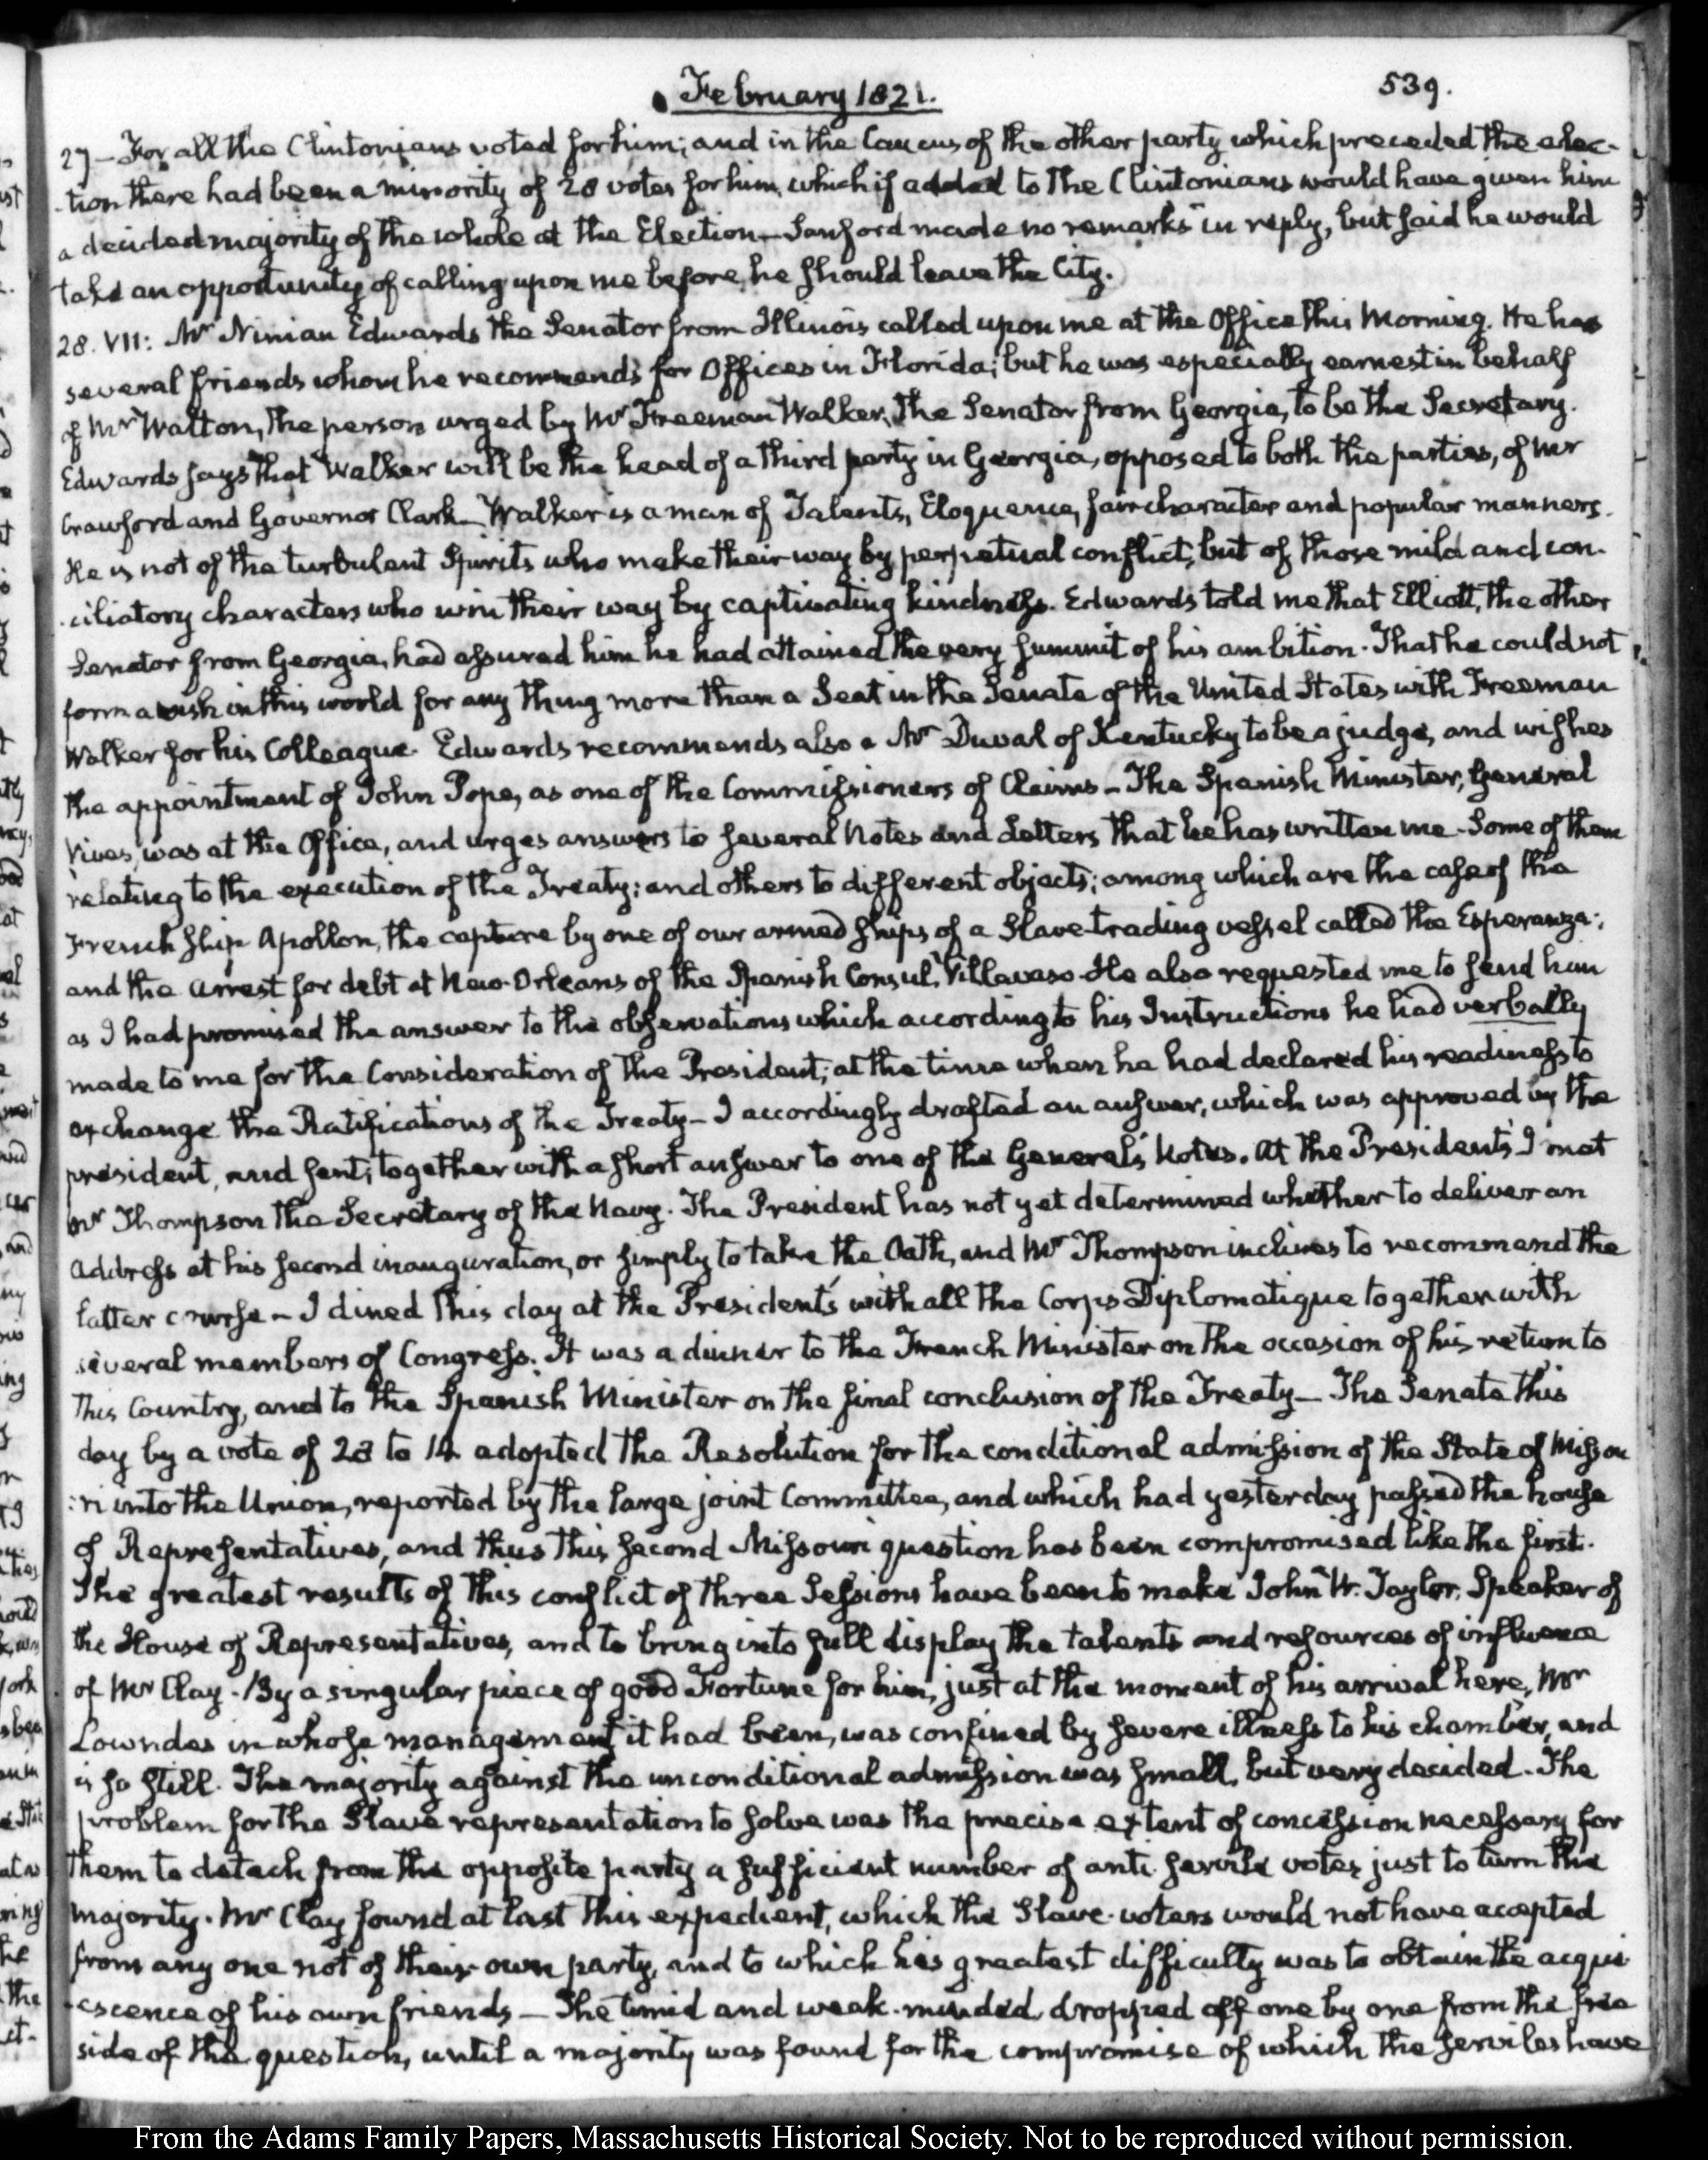 February 1821.
539.
27 — For all the Clintonians voted for him; and in the Caucus of the other party which preceded the elec-
-tion there had been a minority of 28 votes for him, which if added to the Clintonians would have given him
a decided majority of the whole at the Election — Sanford made no remarks in reply, but said he would
take an opportunity of calling upon me before he should leave the City.
28. VII: Mr Ninian Edwards the Senator from Illinois called upon me at the Office this Morning. He has
several friends whom he recommends for Offices in Florida; but he was especially earnest in behalf
of Mr Walton, the person urged by Mr Freeman Walker, the Senator from Georgia, to be the Secretary.
Edwards says that Walker will be the head of a third party in Georgia, opposed to both the parties, of Mr
Crawford and Governor Clark — Walker is a man of Talents, Eloquence, fair character and popular manners.
He is not of the turbulent Spirits who make their way by perpetual conflict; but of those mild and con-
-ciliatory characters who win their way by captivating kindness. Edwards told me that Elliott, the other
Senator from Georgia, had assured him he had attained the very summit of his ambition. That he could not
form a wish in this world for any thing more than a Seat in the Senate of the United States with Freeman
Walker for his Colleague. Edwards recommends also a Mr Duval of Kentucky to be a judge, and wishes
the appointment of John Pope, as one of the Commissioners of Claims — The Spanish Minister, General
Vives, was at the Office, and urges answers to several Notes and Letters that he has written me. Some of them
relating to the execution of the Treaty; and others to different objects; among which are the case of the
French Ship Apollon, the capture by one of our armed ships of a Slave-trading vessel called the Esperanza;
and the arrest for debt at New-Orleans of the Spanish Consul, Villavaso. He also requested me to send him
as I had promised the answer to the observations which according to his Instructions he had verbally
made to me for the Consideration of the President; at the time when he had declared his readiness to
exchange the Ratifications of the Treaty — I accordingly drafted an answer, which was approved by the
president, and sent; together with a short answer to one of the General's Notes. At the President's I met
Mr Thompson the Secretary of the Navy. The President has not yet determined whether to deliver an
Address at his second inauguration, or simply to take the Oath, and Mr Thompson inclines to recommend the
latter course — I dined this day at the President's with all the Corps Diplomatique together with
several members of Congress. It was a dinner to the French Minister on the occasion of his return to
this Country, and to the Spanish Minister on the final conclusion of the Treaty — The Senate this
day by a vote of 28 to 14 adopted the Resolution for the conditional admission of the State of Missou
:ri into the Union, reported by the large joint Committee, and which had yesterday passed the house
of Representatives, and thus this second Missouri question has been compromised like the first.
The greatest results of this conflict of three Sessions have been to make John W. Taylor, Speaker of
the House of Representatives, and to bring into full display the talents and resources of influence
of Mr Clay. By a singular piece of good Fortune for him, just at the moment of his arrival here, Mr
Lowndes in whose management it had been, was confined by severe illness to his chamber, and
is so still. The majority against the unconditional admission was small, but very decided. The
problem for the Slave representation to solve was the precise extent of concession necessary for
them to detach from the opposite party a sufficient number of anti-servile votes just to turn the
majority. Mr Clay found at last this expedient, which the Slave-voters would not have accepted
from any one not of their own party, and to which his greatest difficulty was to obtain the acqui
-escence of his own friends — The timid and weak-minded dropped off one by one from the free
side of the question, until a majority was found for the compromise of which the serviles have
From the Adams Family Papers, Massachusetts Historical Society. Not to be reproduced without permission.